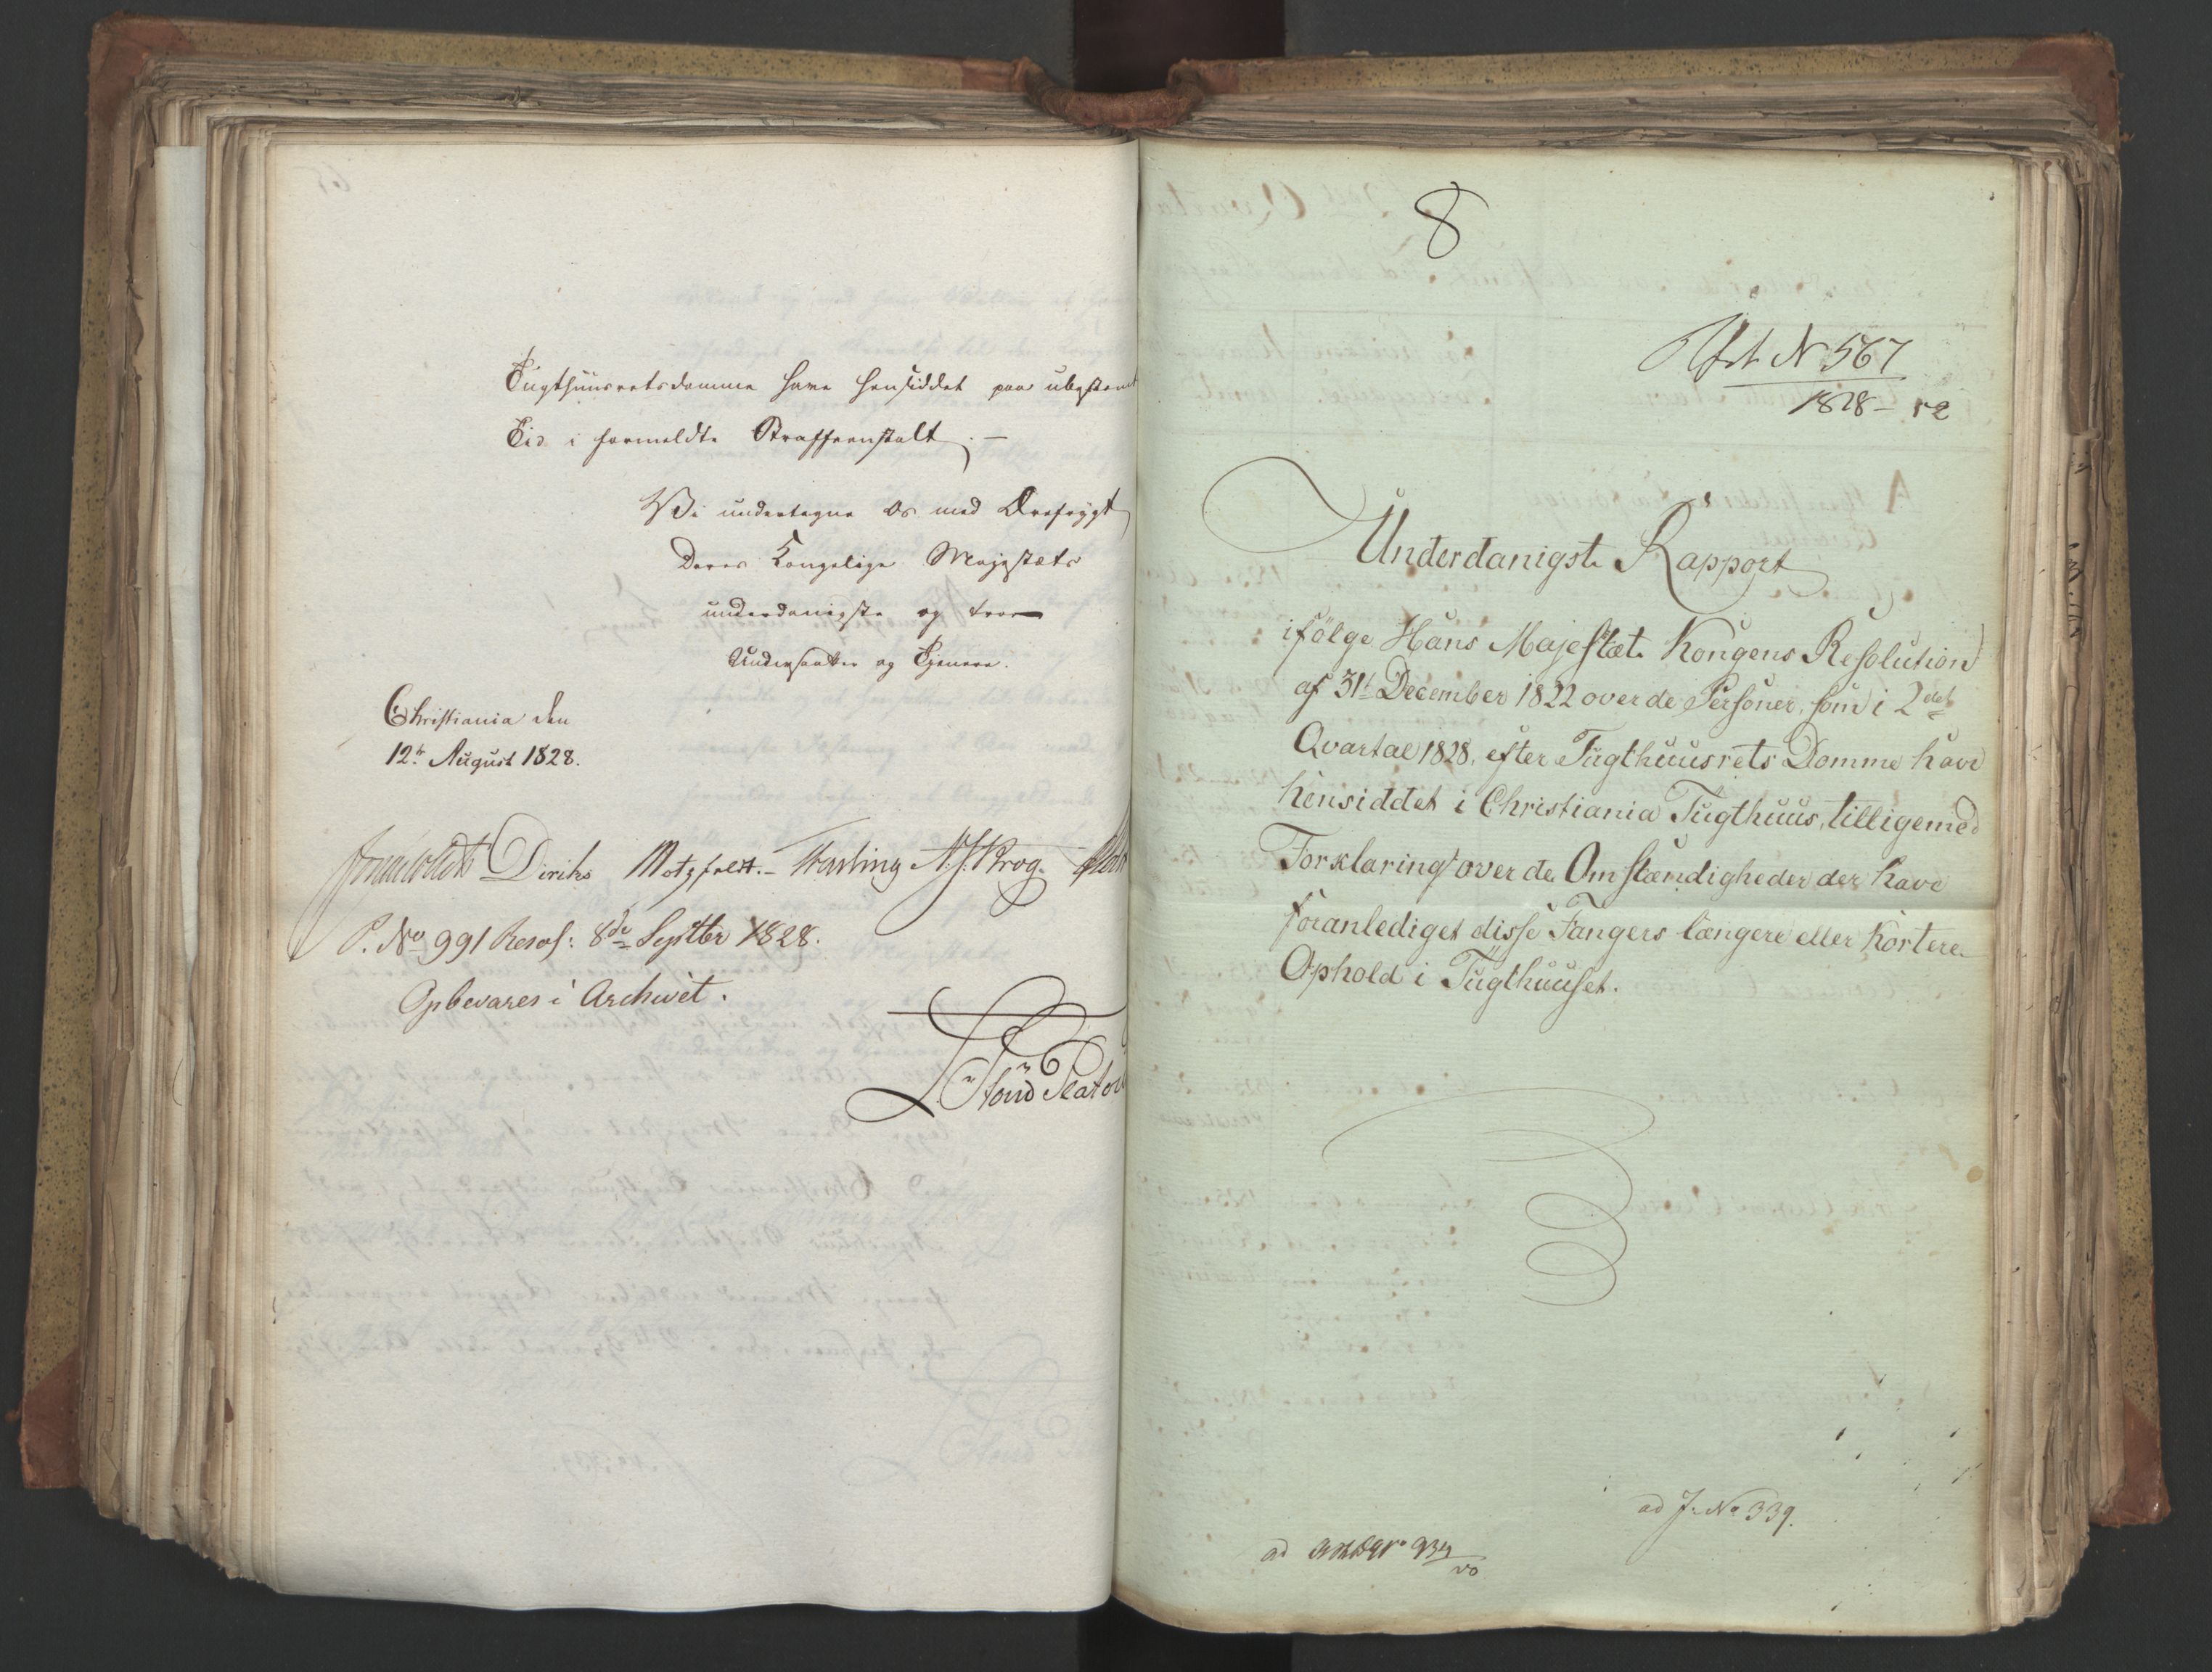 Tugthuusretsdomme have hensiddet paa ubestemt
Tid i formeldte Straffeanstalt. —
Vi undertegne os med Ærefrygt
Deres Kongelige Majestæts
underdanigste og troe
Undersaatter og Tjenere.
Christiania den
12te August 1828.
Diriks Motzfeldt. Fasting A. J. Krog.
P. No 991 Resol: 8de Septbr 1828.
Opbevares i Archivet.
8
No 567
1828 – 12
Underdanigst Rapport
ifölge Hans Majestæt Kongens Resolution
af 31t December 1822 over de Personer, som i 2det
Qvartal 1828, efter Tugthuusrets Domme have
hensiddet i Christiania Tugthuus, tilligemed
Forklaring over de Omstændigheder der have
foranlediget disse Fangers længere eller kortere
Ophold i Tugthuuset.
ad J. No 339.
ad